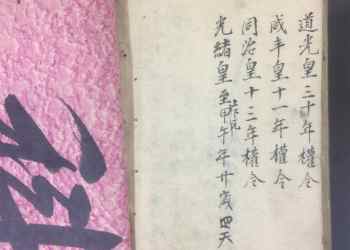 道光皇三十年權令
咸丰皇十一年權令
同治皇十三年權令
光緒皇至甲午年廿歲四天